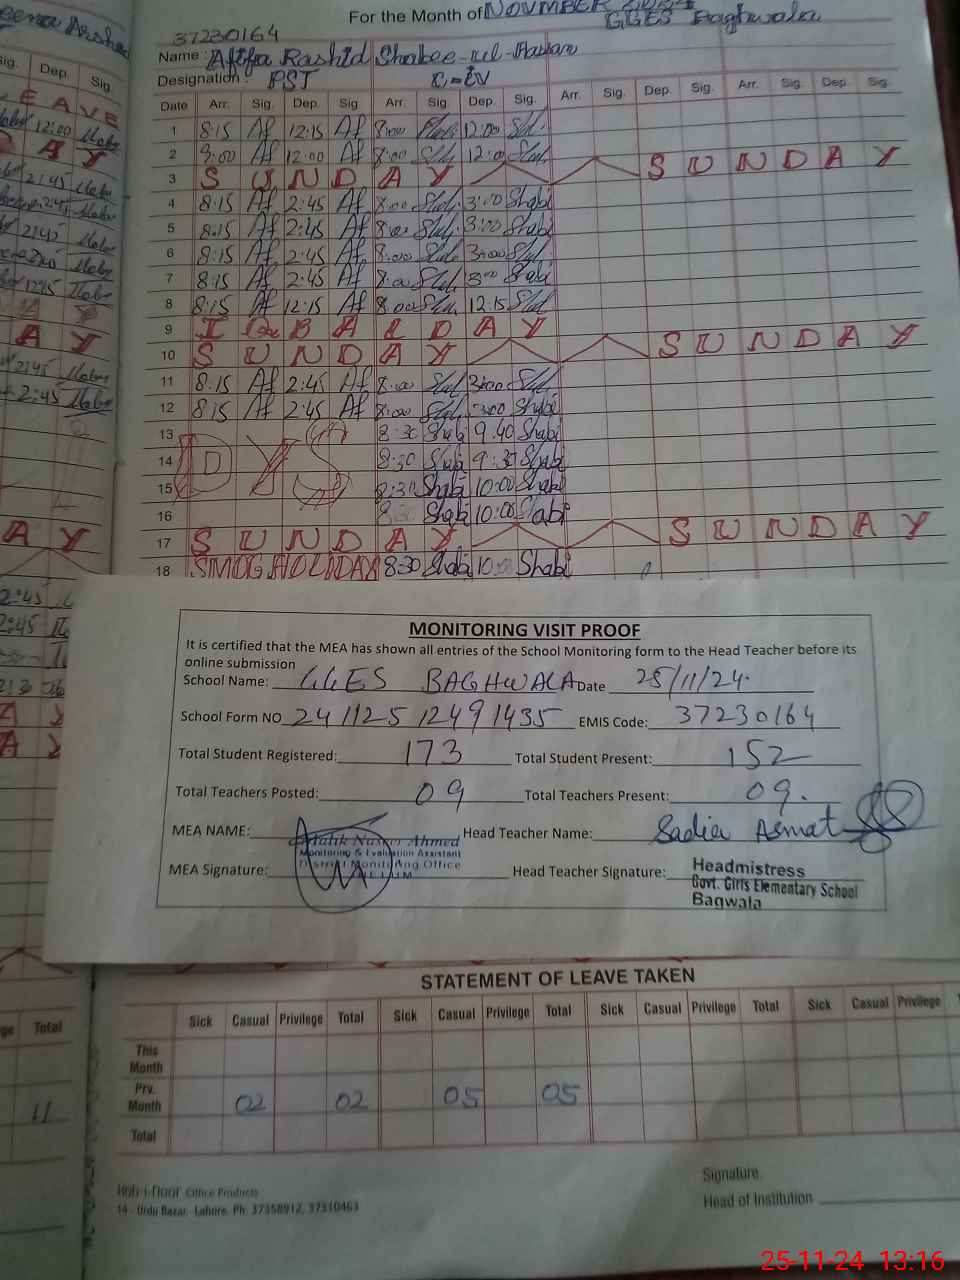 For the Month of NOVMBER 2024
GGES Baghwala
37230164
Name : Afifa Rashid Shabee-ul-Hassan
Designation : PST C-iv
Date Arr. Sig. Dep. Sig Arr. Sig. Dep. Sig. Arr. Sig. Dep. Sig. Arr. Sig. Dep. Sig.
1 8:15 Af 12:15 Af 8:00 12:00
2 8:00 Af 12:00 Af 8:00 12:00
3 S U N D A Y S U N D A Y
4 8:15 Af 2:45 Af 8:00 3:00 Shabi
5 8:15 Af 2:45 Af 8:00 3:00 Shabi
6 8:15 Af 2:45 Af 8:00 3:00
7 8:15 Af 2:45 Af 8:00 3:00 Shabi
8 8:15 Af 12:15 Af 8:00 12:15
9 I Q B A L D A Y
10 S U N D A Y S U N D A Y
11 8:15 Af 2:45 Af 8:00 3:00
12 8:15 Af 2:45 Af 8:00 3:00 Shabi
13 8:30 Shabi 9:40 Shabi
14 D Y S 8:30 Shabi 9:30 Shabi
15 8:30 Shabi 10:00 Shabi
16 8:30 Shabi 10:00 Shabi
17 S U N D A Y S U N D A Y
18 SMOG HOLIDAY 8:30 Shabi 10:00 Shabi
MONITORING VISIT PROOF
It is certified that the MEA has shown all entries of the School Monitoring form to the Head Teacher before its
online submission
School Name: GGES BAGHWALA Date 25/11/24
School Form NO 24112512491435 EMIS Code: 37230164
Total Student Registered: 173 Total Student Present: 152
Total Teachers Posted: 09 Total Teachers Present: 09.
MEA NAME: Malik Nusser Ahmed Head Teacher Name: Sadia Asmat
Monitoring & Evaluation Assistant
District Monitoring Office
MEA Signature: JHELUM Head Teacher Signature: Headmistress
Govt. Girls Elementary School
Bagwala
STATEMENT OF LEAVE TAKEN
Sick Casual Privilege Total Sick Casual Privilege Total Sick Casual Privilege Total Sick Casual Privilege
This Month
Prv. Month 02 02 05 05
Total
Office Products
14 - Urdu Bazar, Lahore. Ph: 37358912, 37310463
Signature.
Head of Institution
25-11-24 13:16